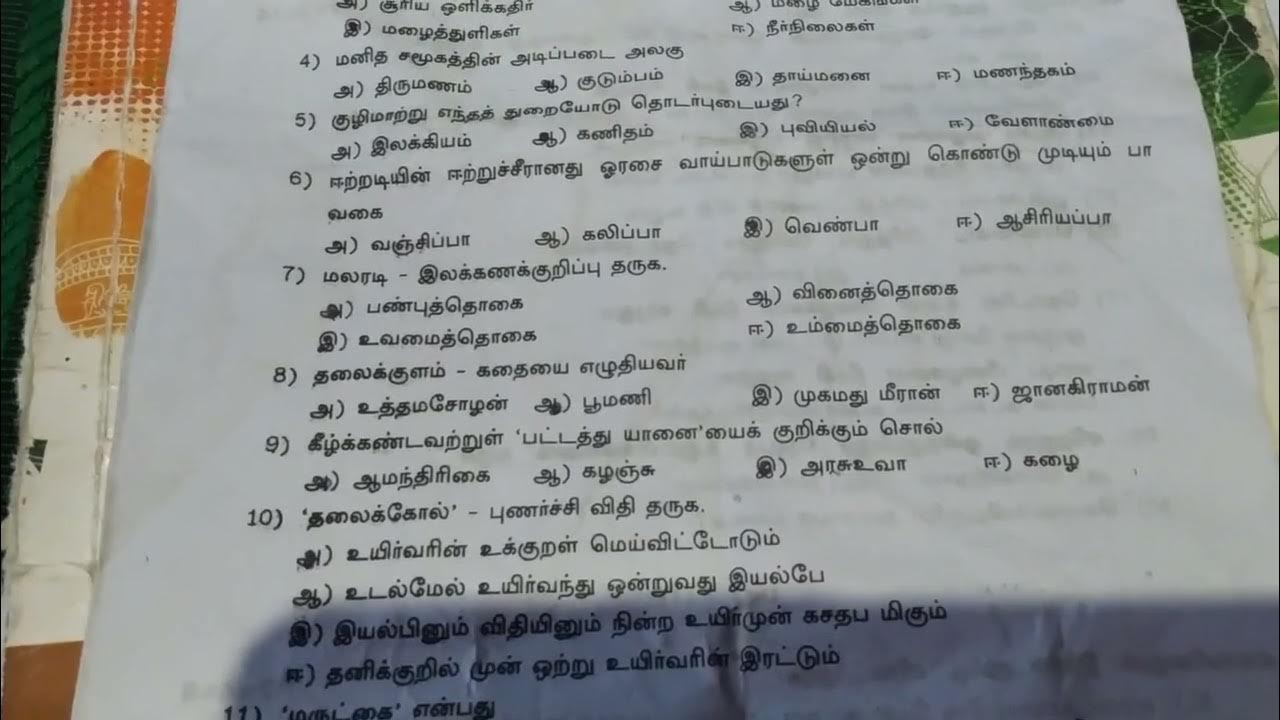 அ) சூரிய ஒளிக்கதிர் ஆ) மழை
இ) மழைத்துளிகள் ஈ) நீர்நிலைகள்
4) மனித சமூகத்தின் அடிப்படை அலகு
அ) திருமணம் ஆ) குடும்பம் இ) தாய்மனை ஈ) மணந்தகம்
5) குழிமாற்று எந்தத் துறையோடு தொடர்புடையது?
அ) இலக்கியம் ஆ) கணிதம் இ) புவியியல் ஈ) வேளாண்மை
6) ஈற்றடியின் ஈற்றுச்சீரானது ஓரசை வாய்பாடுகளுள் ஒன்று கொண்டு முடியும் பா
வகை
அ) வஞ்சிப்பா ஆ) கலிப்பா இ) வெண்பா ஈ) ஆசிரியப்பா
7) மலரடி - இலக்கணக்குறிப்பு தருக.
அ) பண்புத்தொகை ஆ) வினைத்தொகை
இ) உவமைத்தொகை ஈ) உம்மைத்தொகை
8) தலைக்குளம் - கதையை எழுதியவர்
அ) உத்தமசோழன் ஆ) பூமணி இ) முகமது மீரான் ஈ) ஜானகிராமன்
9) கீழ்க்கண்டவற்றுள் 'பட்டத்து யானை'யைக் குறிக்கும் சொல்
அ) ஆமந்திரிகை ஆ) கழஞ்சு இ) அரசுஉவா ஈ) கழை
10) 'தலைக்கோல்' - புணர்ச்சி விதி தருக.
அ) உயிர்வரின் உக்குறள் மெய்விட்டோடும்
ஆ) உடல்மேல் உயிர்வந்து ஒன்றுவது இயல்பே
இ) இயல்பினும் விதியினும் நின்ற உயிர்முன் கசதப மிகும்
ஈ) தனிக்குறில் முன் ஒற்று உயிர்வரின் இரட்டும்
11) 'மருட்கை' என்பது